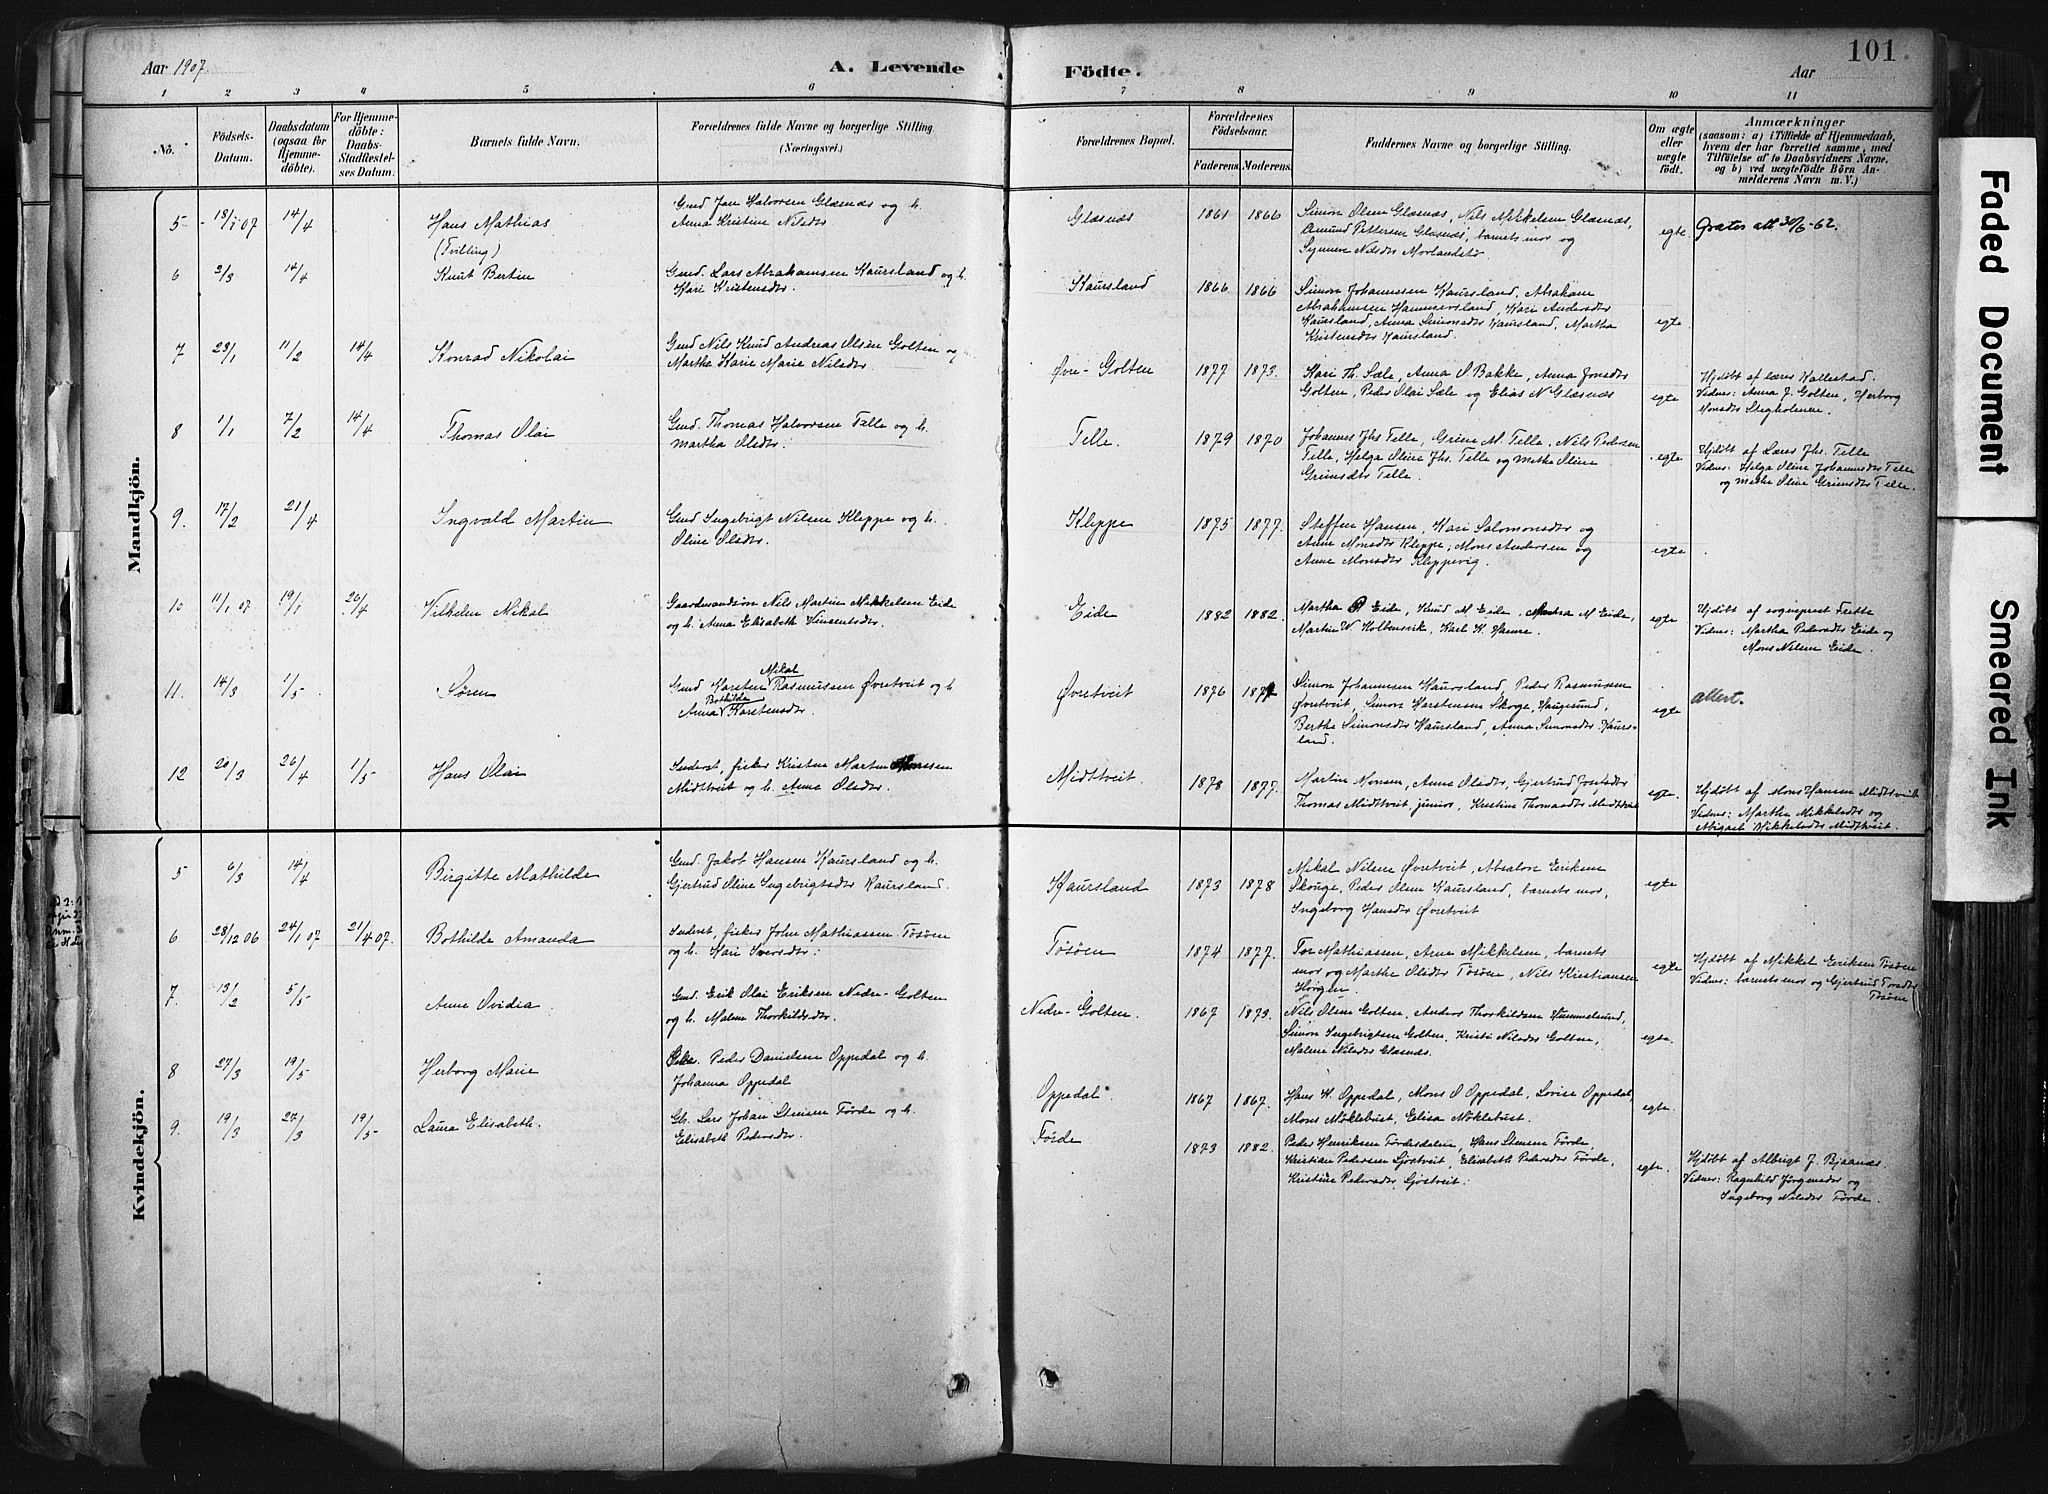 Aar 1907.
A. Levende Födte.
Aar
101
1 2 3 4 5 6 7 8 9 10 11
No.
Födsels-Datum.
Daabsdatum (ogsaa for Hjemmedöbte).
For Hjemmedöbte: Daabs-Stadfestelses Datum.
Barnets fulde Navn.
Forældrenes fulde Navne og borgerlige Stilling.
(Næringsvei.)
Forældrenes Bopæl.
Forældrenes Födselsaar.
Faderens. Moderens.
Faddernes Navne og borgerlige Stilling.
Om ægte eller uægte födt.
Anmærkninger
(saasom: a) i Tilfælde af Hjemmedaab,
hvem der har forrettet samme, med
Tilföielse af to Daabsvidners Navne,
og b) ved uægtefödte Börn Anmelderens Navn m. V.)
Mandkjön.
5 18/1 07 14/4 Hans Mathias (Tvilling)
Gmd Jan Halvorsen Glæsnæs og h.
Anna Kristine Nilsdtr
Glæsnæs 1861 1866
Simon Olsen Glæsnæs, Nils Mikkelsen Glæsnæs,
Amund Pettersen Glæsnæs, barnets mor og
Synneve Nilsdtr
egte.
6 2/3 14/4 Knut Bertin
Gmd. Lars Abrahamsen Kaursland og h.
Kari Kristensdtr.
Kaursland 1866 1866
Simon Johannessen Kaursland, Abraham
Abrahamsen Hammersland, Kari Andersdtr
Kaursland, Anna Simonsdtr Kaursland, Martha
Kristensdtr Kaursland.
egte
7 23/1 11/2 14/4 Konrad Nikolai
Gmd Nils Knud Andreas Olsen Golten og h.
Marthe Karie Marie Nilsdtr.
Øvre-Golten 1877 1873.
Kari Th. Sæle, Anna O Bakke, Anna Jonsdtr
Golten, Peder Olai Sæle og Elias N Glæsnæs
egte
Hjdøbt af lærer Kallestad.
Vidner: Anna J. Golten, Herborg
Monsdtr Stegholmen.
8 1/1 7/2 14/4 Thomas Olai
Gmd. Thomas Halvorsen Telle og h.
Martha Olsdtr.
Telle. 1879 1870
Johannes Jhs Telle, Grim M. Telle, Nils Pedersen
Telle, Helga Oline Jhs. Telle og Methe Oline
Grimsdtr Telle.
egte
Hjdøbt af Lærer Jhs. Telle
Vidner: Helga Oline Johannesdtr Telle
og Methe Oline Grimsdtr Telle.
9. 17/2 21/4 Ingvald Martin
Gmd Ingebrigt Nilsen Kleppe og h.
Oline Olsdtr.
Kleppe 1875 1877.
Steffen Hansen, Kari Salomonsdtr og
Anne Monsdtr Kleppe, Mons Andersen og
Anne Monsdtr Kleppevig.
egte
10 11/1 07 19/1 26/4 Vilhelm Mikal
Gaardmandsøn Nils Martin Mikkelsen Eide
og h. Anna Elisabeth Vincentsdtr.
Eide 1882 1882.
Martha P Eide, Knud M Eide, Martha M Eide,
Martin W Kolbensvik, Karl K. Hamre.
egte
Hjdøbt af sogneprest Frette
Vidner: Martha Pedersdtr Eide og
Mons Nilsen Eide.
11. 14/3 1/5 Søren
Gmd Karsten Mikal Rasmussen Øvretveit og h
Anna Bothilde Karstensdtr.
Øvretveit 1876
Simon Johannesen Kaursland, Peder Rasmussen
Øvretveit, Simon Karstensen Skoge, Haugesund,
Berthe Simonsdtr Kaursland, Anna Simonsdtr Kaurs-
land.
egte
attert.
12 20/3 26/4 1/5 Hans Olai
Inderst, fisker Kristen Martin Monssen
Midttveit og h. Anna Olsdtr.
Midttveit 1878 1877.
Martin Monsen, Anne Olsdtr, Gjertrud Josefsdtr
Thomas Midttveit, junior, Kristine Thomasdtr Midttveit
egte.
Hjdøbt af Mons Hansen Midttveit
Vidner: Martha Mikkelsdtr og
Abigael Mikkelsdtr Midttveit.
Kvindekjön.
5 6/3 14/4 Birgitte Mathilde
Gmd. Jakob Hansen Kaursland og h.
Gjertrud Oline Ingebrigtsdtr Kaursland.
Kaursland 1873 1878
Mikal Nilsen Øvretveit, Absalon Eriksen
Skouge, Peder Olsen Kaursland, barnets mor,
Ingeborg Hansdtr Øvretveit
egte
6 28/12 06 24/1 07 21/4 07. Bothilde Amanda
Inderst, fisker John Mathiassen Tøsøen
og h. Kari Iversdtr.
Tøsøen 1874 1877.
Tor Mathiassen, Arne Mikkelsen, barnets
mor og Marthe Olsdtr Tøsøen, Nils Kristiansen
egte
Hjdøbt af Mikkel Eriksen Tøsøen
Vidner: barnets mor og Gjertrud Torsdtr
Tøsøen
7. 13/2 5/5 Anne Ovidia
Gmd. Erik Olai Eriksen Nedre-Golten
og h. Malene Thorkildsdtr.
Nedre-Golten. 1867 1873.
Nils Olsen Golten, Anders Thorkildsen Hummelsund,
Simon Ingebrigtsen Golten, Kristi Nilsdtr Golten,
Malene Nilsdtr Glæsnæs.
egte.
8 27/3 19/5 Herborg Marie
Peder Danielsen Oppedal og h.
Johanna Oppedal
Oppedal. 1867 1867.
Hans H. Oppedal, Mons O Oppedal, Lovise Oppedal,
Mons Møklebust, Elisa Møklebust.
egte.
9. 19/3 27/3 19/5 Laura Elisabeth.
Gb. Lars Johan Stensen Førde og h.
Elisabeth Pedersdtr.
Førde 1873 1882.
Peder Henriksen Førdesdalen, Hans Stensen Førde,
Kristian Pedersen Gjøstveit, Elisabeth Pedersdtr Førde,
Kristine Pedersdtr Gjøstveit.
egte.
Hjdøbt af Albrigt J. Bjaanæs.
Vidner: Ragnhild Jørgensdtr og
Ingeborg Nilsdtr Førde.
Faded Document
Smeared Ink